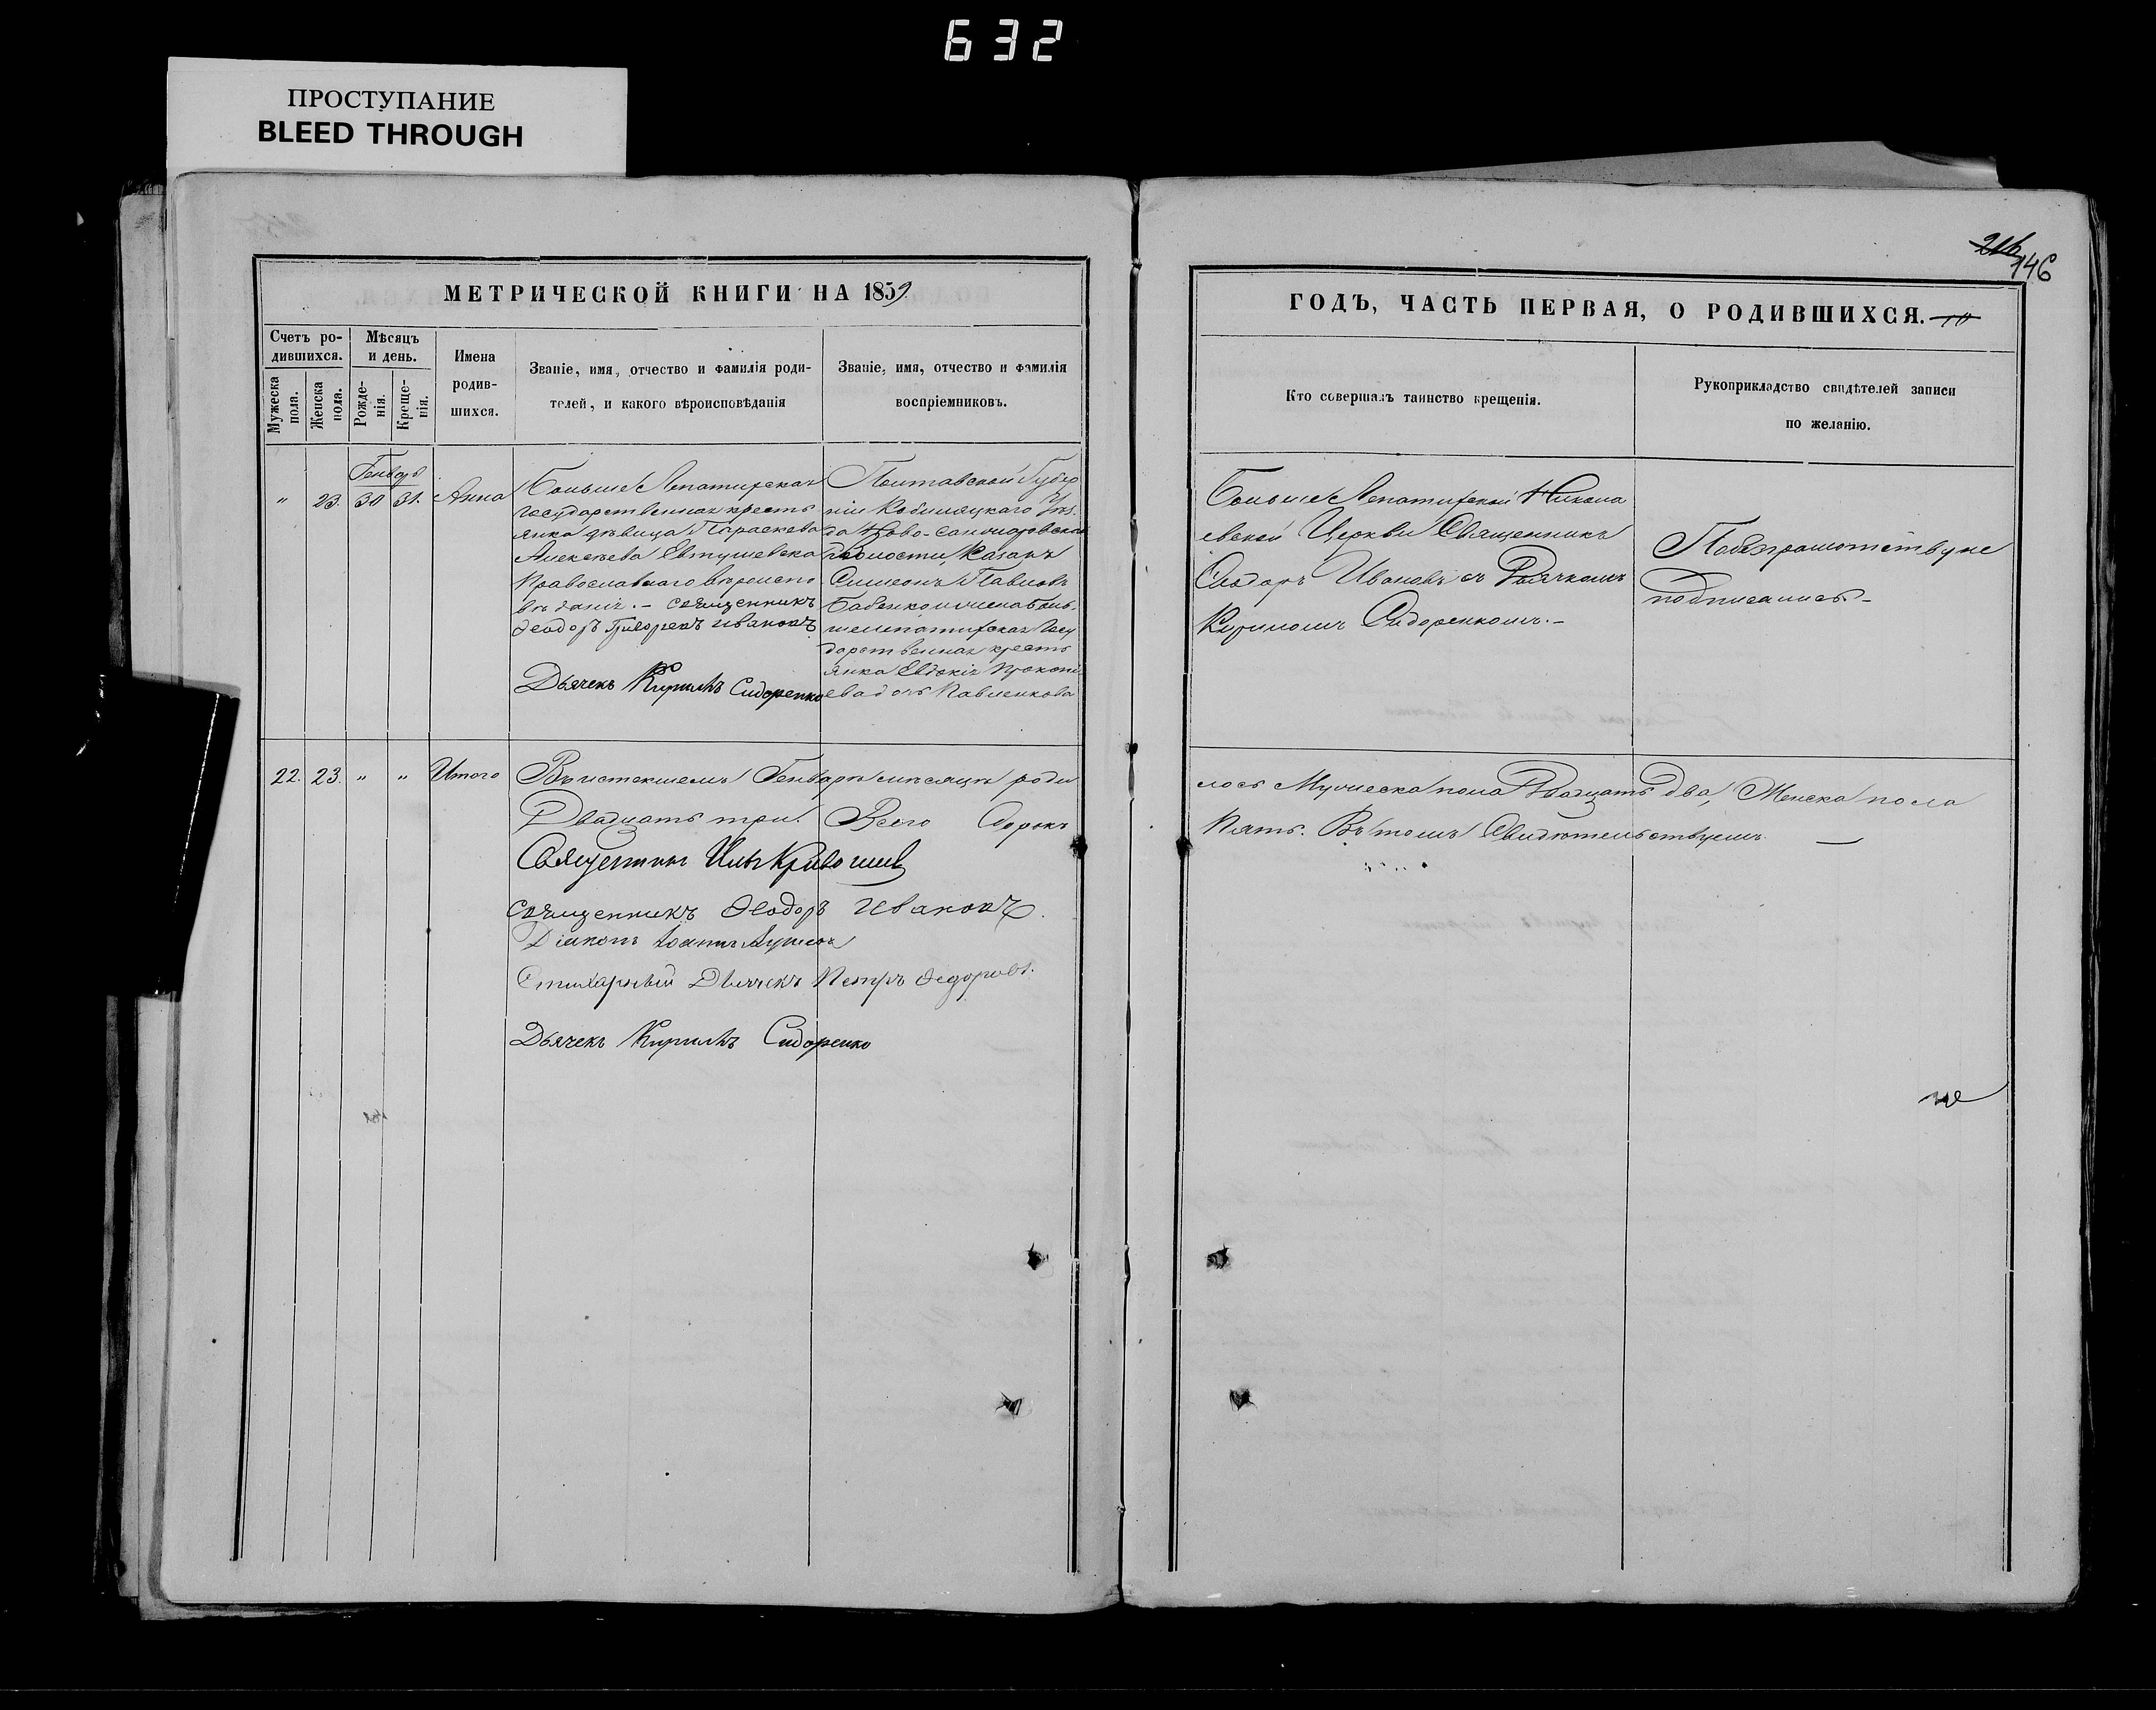 632
ПРОСТУПАНИЕ
BLEED THROUGH
146
МЕТРИЧЕСКОЙ КНИГИ НА 1859
Счетъ ро-
дившихся.
Мѣсяцъ
и день.
Мужеска
пола.
Женска
пола.
Рожде-
нія.
Креще-
нія.
Имена
родив-
шихся.
Званіе, имя, отчество и фамилія роди-
телей, и какого вѣроисповѣданія
Званіе, имя, отчество и фамилія
воспріемниковъ.
Генварь
" 23. 30 31. Анна
Больше Лепатихская
государственная кресть
янка дѣвица Параскева
Алексѣева Евтушевска
Православнаго вѣроиспо
вѣданія. – священникъ
Ѳеодоръ Григорьевъ Ивановъ
Дьячекъ Кириллъ Сидоренко
Полтавской Губер
ніи Кобеляцкаго Уѣз.
да Ново-Санжаровской
волости, Казакъ
Симеонъ Павловъ
Бабенко и жена Боль-
шелепатихская Госу
дарственная кресть
янка Евдокія Прокопі
ева дочь Павленкова
22. 23. " " Итого
Въ истекшемъ Генварѣ мѣсяцѣ роди
Двадцать три. Всего Сорокъ
Священникъ Илья
священникъ Ѳеодоръ Ивановъ.
Діаконъ Іоаннъ
Стихарный Дьячекъ Петръ Ѳедоровъ.
Дьячекъ Кириллъ Сидоренко
ГОДЪ, ЧАСТЬ ПЕРВАЯ, О РОДИВШИХСЯ.
Кто совершалъ таинство крещенія.
Рукоприкладство свидѣтелей записи
по желанію.
Больше Лепатихской Никола
евской Церкви Священникъ
Ѳеодоръ Ивановъ съ Дьячкомъ
Кириломъ Сидоренкомъ. –
По безграмотству не
подписались. –
лось Мужеска пола Двадцать два, Женска пола
Пять. Въ томъ Свидѣтельствуемъ. —